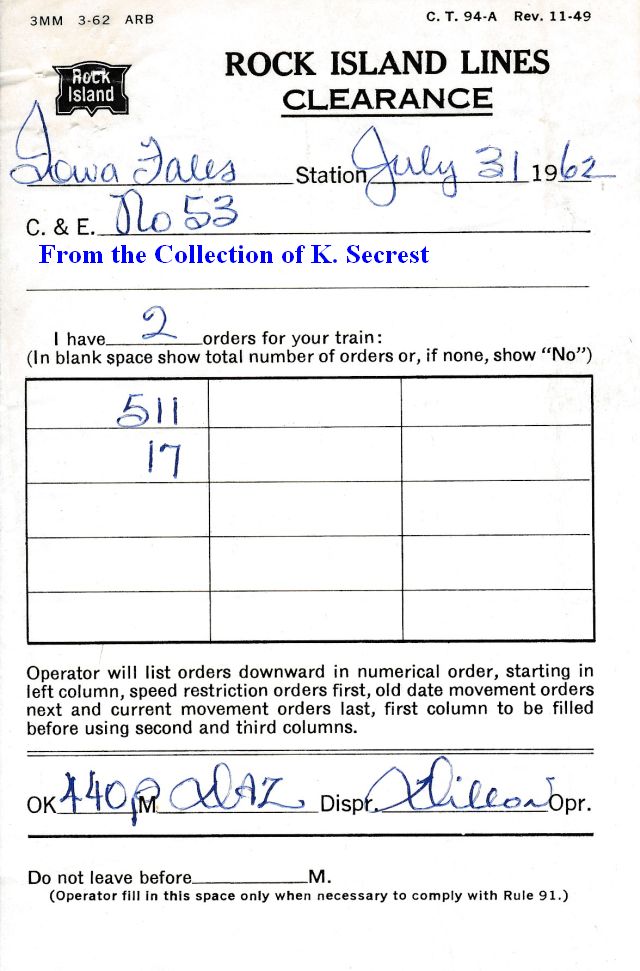 3MM 3-62 ARB
C. T. 94-A Rev. 11-49
Rock Island
ROCK ISLAND LINES
CLEARANCE
Iowa Falls Station July 31 1962
C. & E. No 53
From the Collection of K. Secrest
I have 2 orders for your train:
(In blank space show total number of orders or, if none, show “No”)
511
17
Operator will list orders downward in numerical order, starting in
left column, speed restriction orders first, old date movement orders
next and current movement orders last, first column to be filled
before using second and third columns.
OK 440p M Dispr. Opr.
Do not leave before M.
(Operator fill in this space only when necessary to comply with Rule 91.)